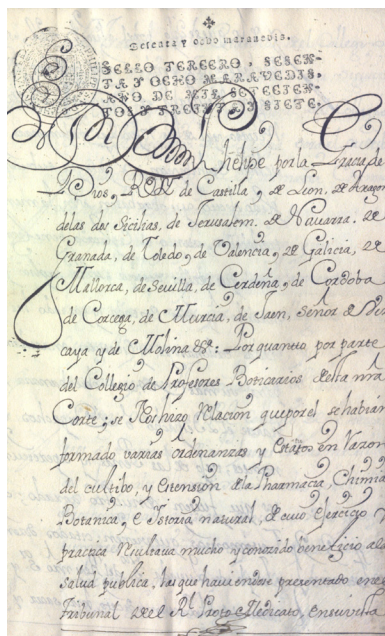 Sesenta y ocho maravedis.
SELLO TERCERO, SESEN-
TA Y OCHO MARAVEDIS,
AÑO DE MIL SETECIEN-
TOS Y TREINTA Y SIETE.
Phelipe por la Gracia de
Dios, Rey de Castilla, de Leon, de Aragon
delas dos Sicilias, de Jerusalem, de Navarra, de
Granada, de Toledo, de Valencia, de Galicia, de
Mallorca, de Sevilla, de Cerdeña, de Cordoba
de Corcega, de Murcia, de Jaen, señor de Viz
caya y de Molina &a: Por quantto por parte
del Collegio de Profesores Boticarios de esta nra
Cortte; se Nos hizo Relacion que por el se habian
formado varias ordenanzas y estattos en razon
del cultibo, y estension de la Pharmacia, Chimia
Botanica, e Istoria natural, de cuio exercizio y
practica resultava mucho y conozido beneficio ala
salud publica, las que haviendose presentado en el
Tribunal de el Rl Proto Medicato, en su villa